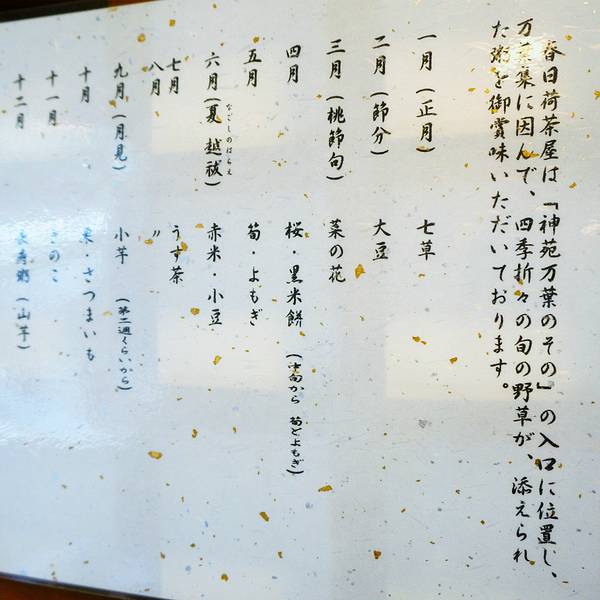 春日荷茶屋は「神苑万葉のその」の入口に位置し、
万葉集に因んで、四季折々の旬の野草が、添えられ
た粥を御賞味いただいております。
一月(正月) 七草
二月(節分) 大豆
三月(桃節句) 菜の花
四月 桜・黒米餅(中旬から 筍とよもぎ)
五月 筍・よもぎ
六月(夏越祓) 赤米・小豆
なごしのはらえ
七月 うす茶
八月 〃
九月(月見) 小芋(第二週くらいから)
十月 栗・さつまいも
十一月 きのこ
十二月 長寿粥(山芋)